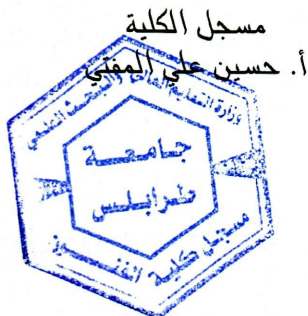 مسجل الكلية
أ. حسين علي المفتي
وزارة التعليم العالي والبحث العلمي
جامعة
طرابلس
مسجل كلية الفنون